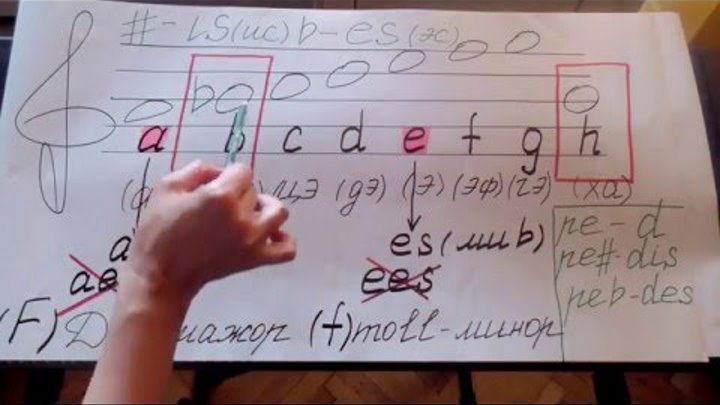 #-is(ис) b-es(эс)
b
a b c d e f g h
цэ (дэ) (э) (эф) (гэ) (ха)
a es(ми b)
ae ees
ре-d
ре#-dis
реb-des
(F) мажор (f)moll-минор